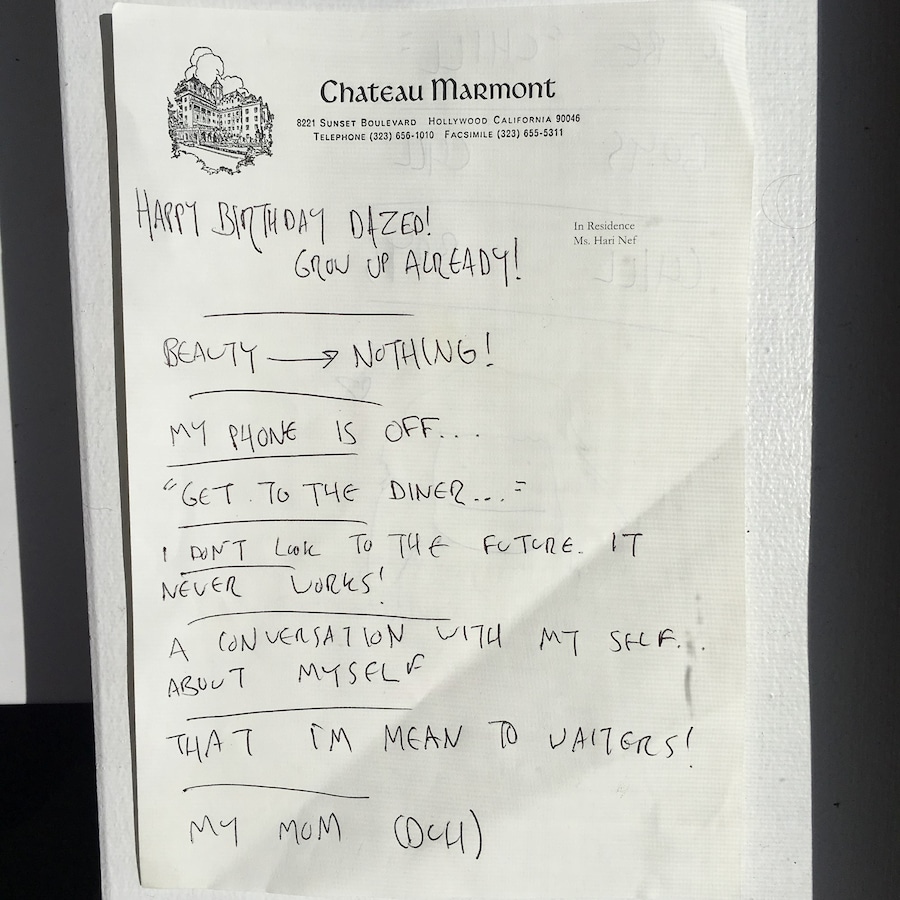 Chateau Marmont
8221 Sunset Boulevard Hollywood California 90046
Telephone (323) 656-1010 Facsimile (323) 655-5311
In Residence
Ms. Hari Nef
HAPPY BIRTHDAY DAZED!
GROW UP ALREADY!
BEAUTY → NOTHING!
MY PHONE IS OFF...
"GET TO THE DINER..."
I DON'T Look TO THE FUTURE. IT
NEVER WORKS!
A CONVERSATION WITH MY SELF...
ABOUT MYSELF
THAT I'M MEAN TO WAITERS!
MY MOM (DUH)